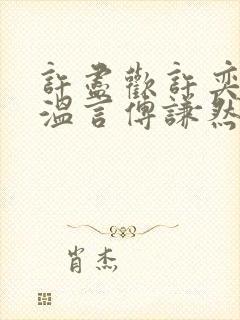 許盡歡許奕
溫言傅謙然
肖杰